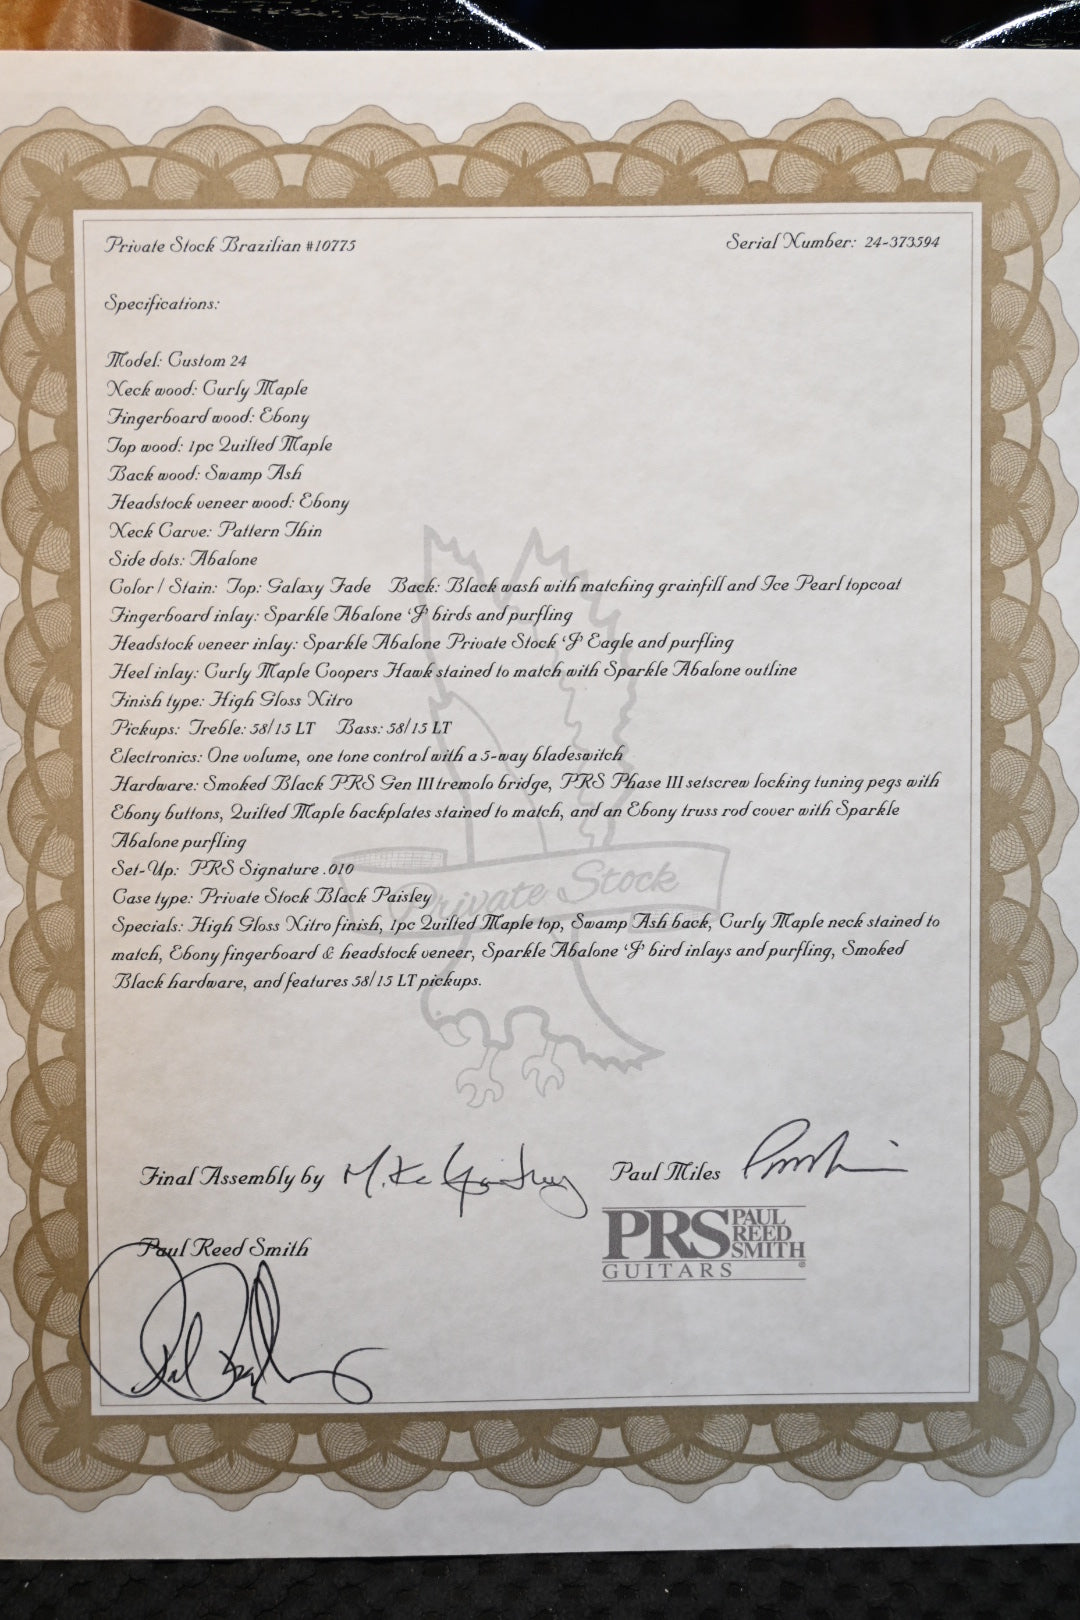 Private Stock Brazilian #10775
Serial Number: 24-373594
Specifications:
Model: Custom 24
Neck wood: Curly Maple
Fingerboard wood: Ebony
Top wood: 1pc Quilted Maple
Back wood: Swamp Ash
Headstock veneer wood: Ebony
Neck Carve: Pattern Thin
Side dots: Abalone
Color / Stain: Top: Galaxy Fade Back: Black wash with matching grainfill and Ice Pearl topcoat
Fingerboard inlay: Sparkle Abalone 'J' birds and purfling
Headstock veneer inlay: Sparkle Abalone Private Stock 'J' Eagle and purfling
Heel inlay: Curly Maple Coopers Hawk stained to match with Sparkle Abalone outline
Finish type: High Gloss Nitro
Pickups: Treble: 58/15 LT Bass: 58/15 LT
Electronics: One volume, one tone control with a 5-way bladeswitch
Hardware: Smoked Black PRS Gen III tremolo bridge, PRS Phase III setscrew locking tuning pegs with
Ebony buttons, Quilted Maple backplates stained to match, and an Ebony truss rod cover with Sparkle
Abalone purfling
Set-Up: PRS Signature .010
Case type: Private Stock Black Paisley
Private Stock
Specials: High Gloss Nitro finish, 1pc Quilted Maple top, Swamp Ash back, Curly Maple neck stained to
match, Ebony fingerboard & headstock veneer, Sparkle Abalone 'J' bird inlays and purfling, Smoked
Black hardware, and features 58/15 LT pickups.
Final Assembly by
Paul Miles
PRS PAUL REED SMITH
GUITARS
Paul Reed Smith